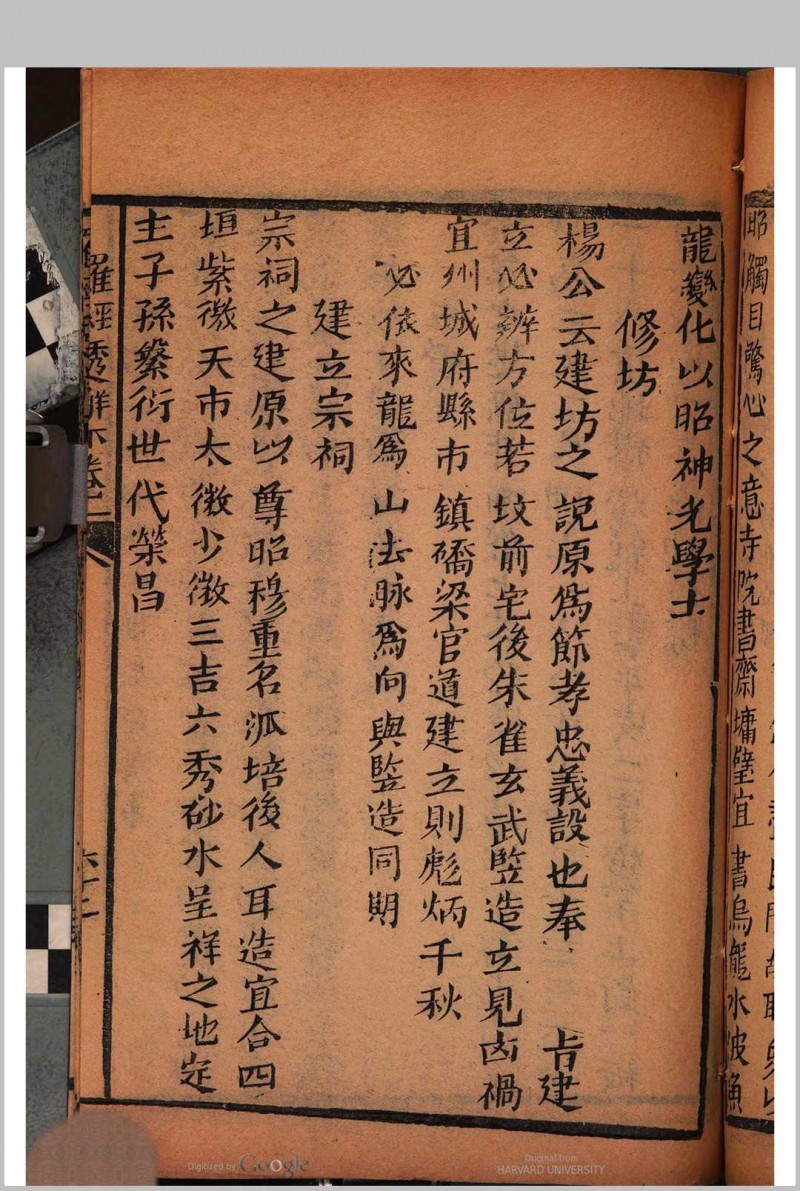 昭觸目驚心之意寺院書齋墉壁宜書烏龍水波漁
龍變化以昭神光學士
修坊
楊公云建坊之說原為節孝忠義設也奉 旨建
立必辨方位若坟前宅後朱雀玄武竪造立見凶禍
宜州城府縣市鎮礄梁官道建立則彪炳千秋
必依來龍為山去脉為向與竪造同期
建立宗祠
宗祠之建原以尊昭穆重名派培後人耳造宜合四
垣紫微天市太微少微三吉六秀砂水呈祥之地定
主子孫繁衍世代榮昌
羅經透解下卷二
六十二
Digitized by Google
Original from
HARVARD UNIVERSITY